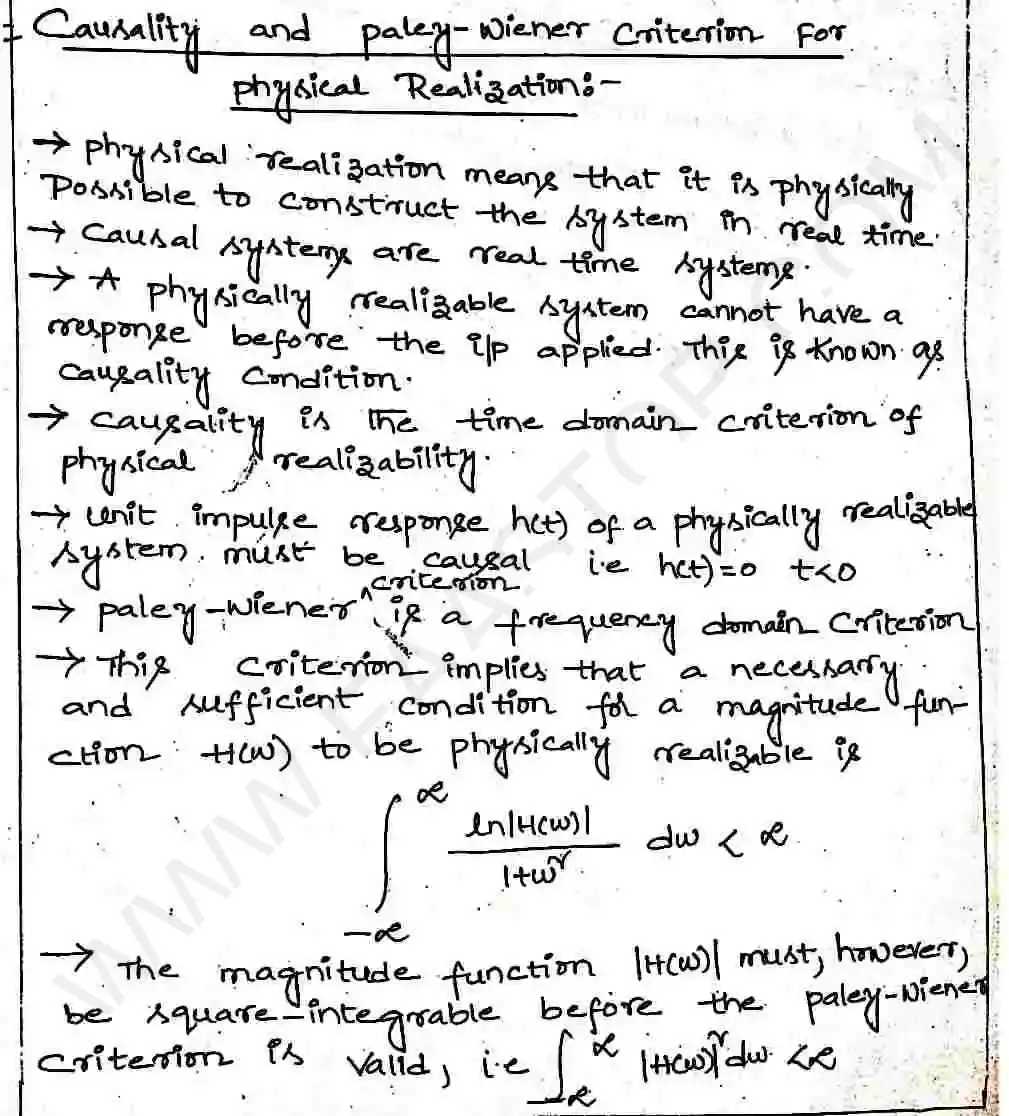 Causality and paley-Wiener Criterion For
physical Realization:-
→ physical realization means that it is physically
Possible to construct the system in real time.
→ Causal systems are real time systems.
→ A physically realizable system cannot have a
response before the i/p applied. This is known as
Causality Condition.
→ Causality is the time domain criterion of
physical realizability.
→ Unit impulse response h(t) of a physically realizable
system must be causal i.e h(t)=0 t<0
→ paley-Wiener ^criterion is a frequency domain Criterion
→ This criterion implies that a necessary
and sufficient condition for a magnitude fun-
ction H(ω) to be physically realizable is
∫_{-∞}^{∞} ln|H(ω)| / 1+ω² dω < ∞
→ The magnitude function |H(ω)| must, however,
be square-integrable before the paley-Wiener
Criterion is Valid, i.e ∫_{-∞}^{∞} |H(ω)|² dω < ∞